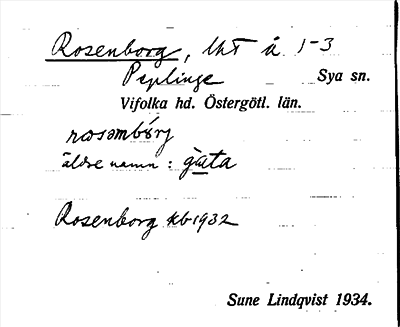 Rosenborg, lht å 1-3
Peplinge Sya sn.
Vifolka hd. Östergötl. län.
rosəmbórj
äldre namn: gàta
Rosenborg kb 1932
Sune Lindqvist 1934.